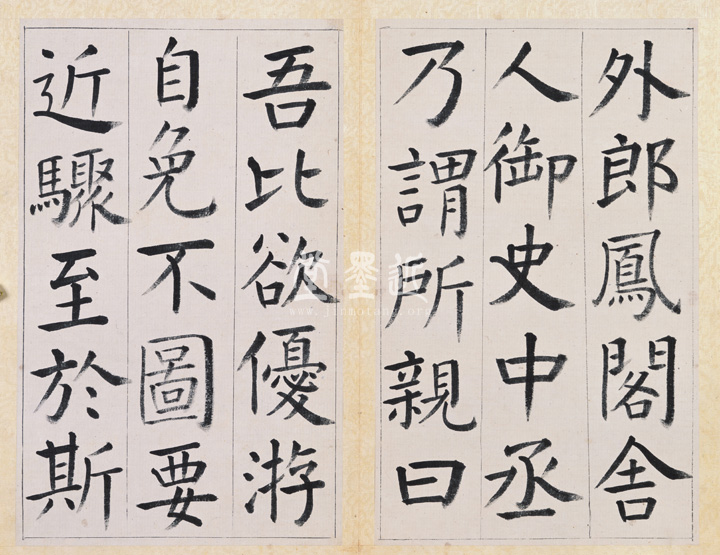 外郎鳳閣舍
人御史中丞
乃謂所親曰
吾比欲優游
自免不圖要
近驟至於斯